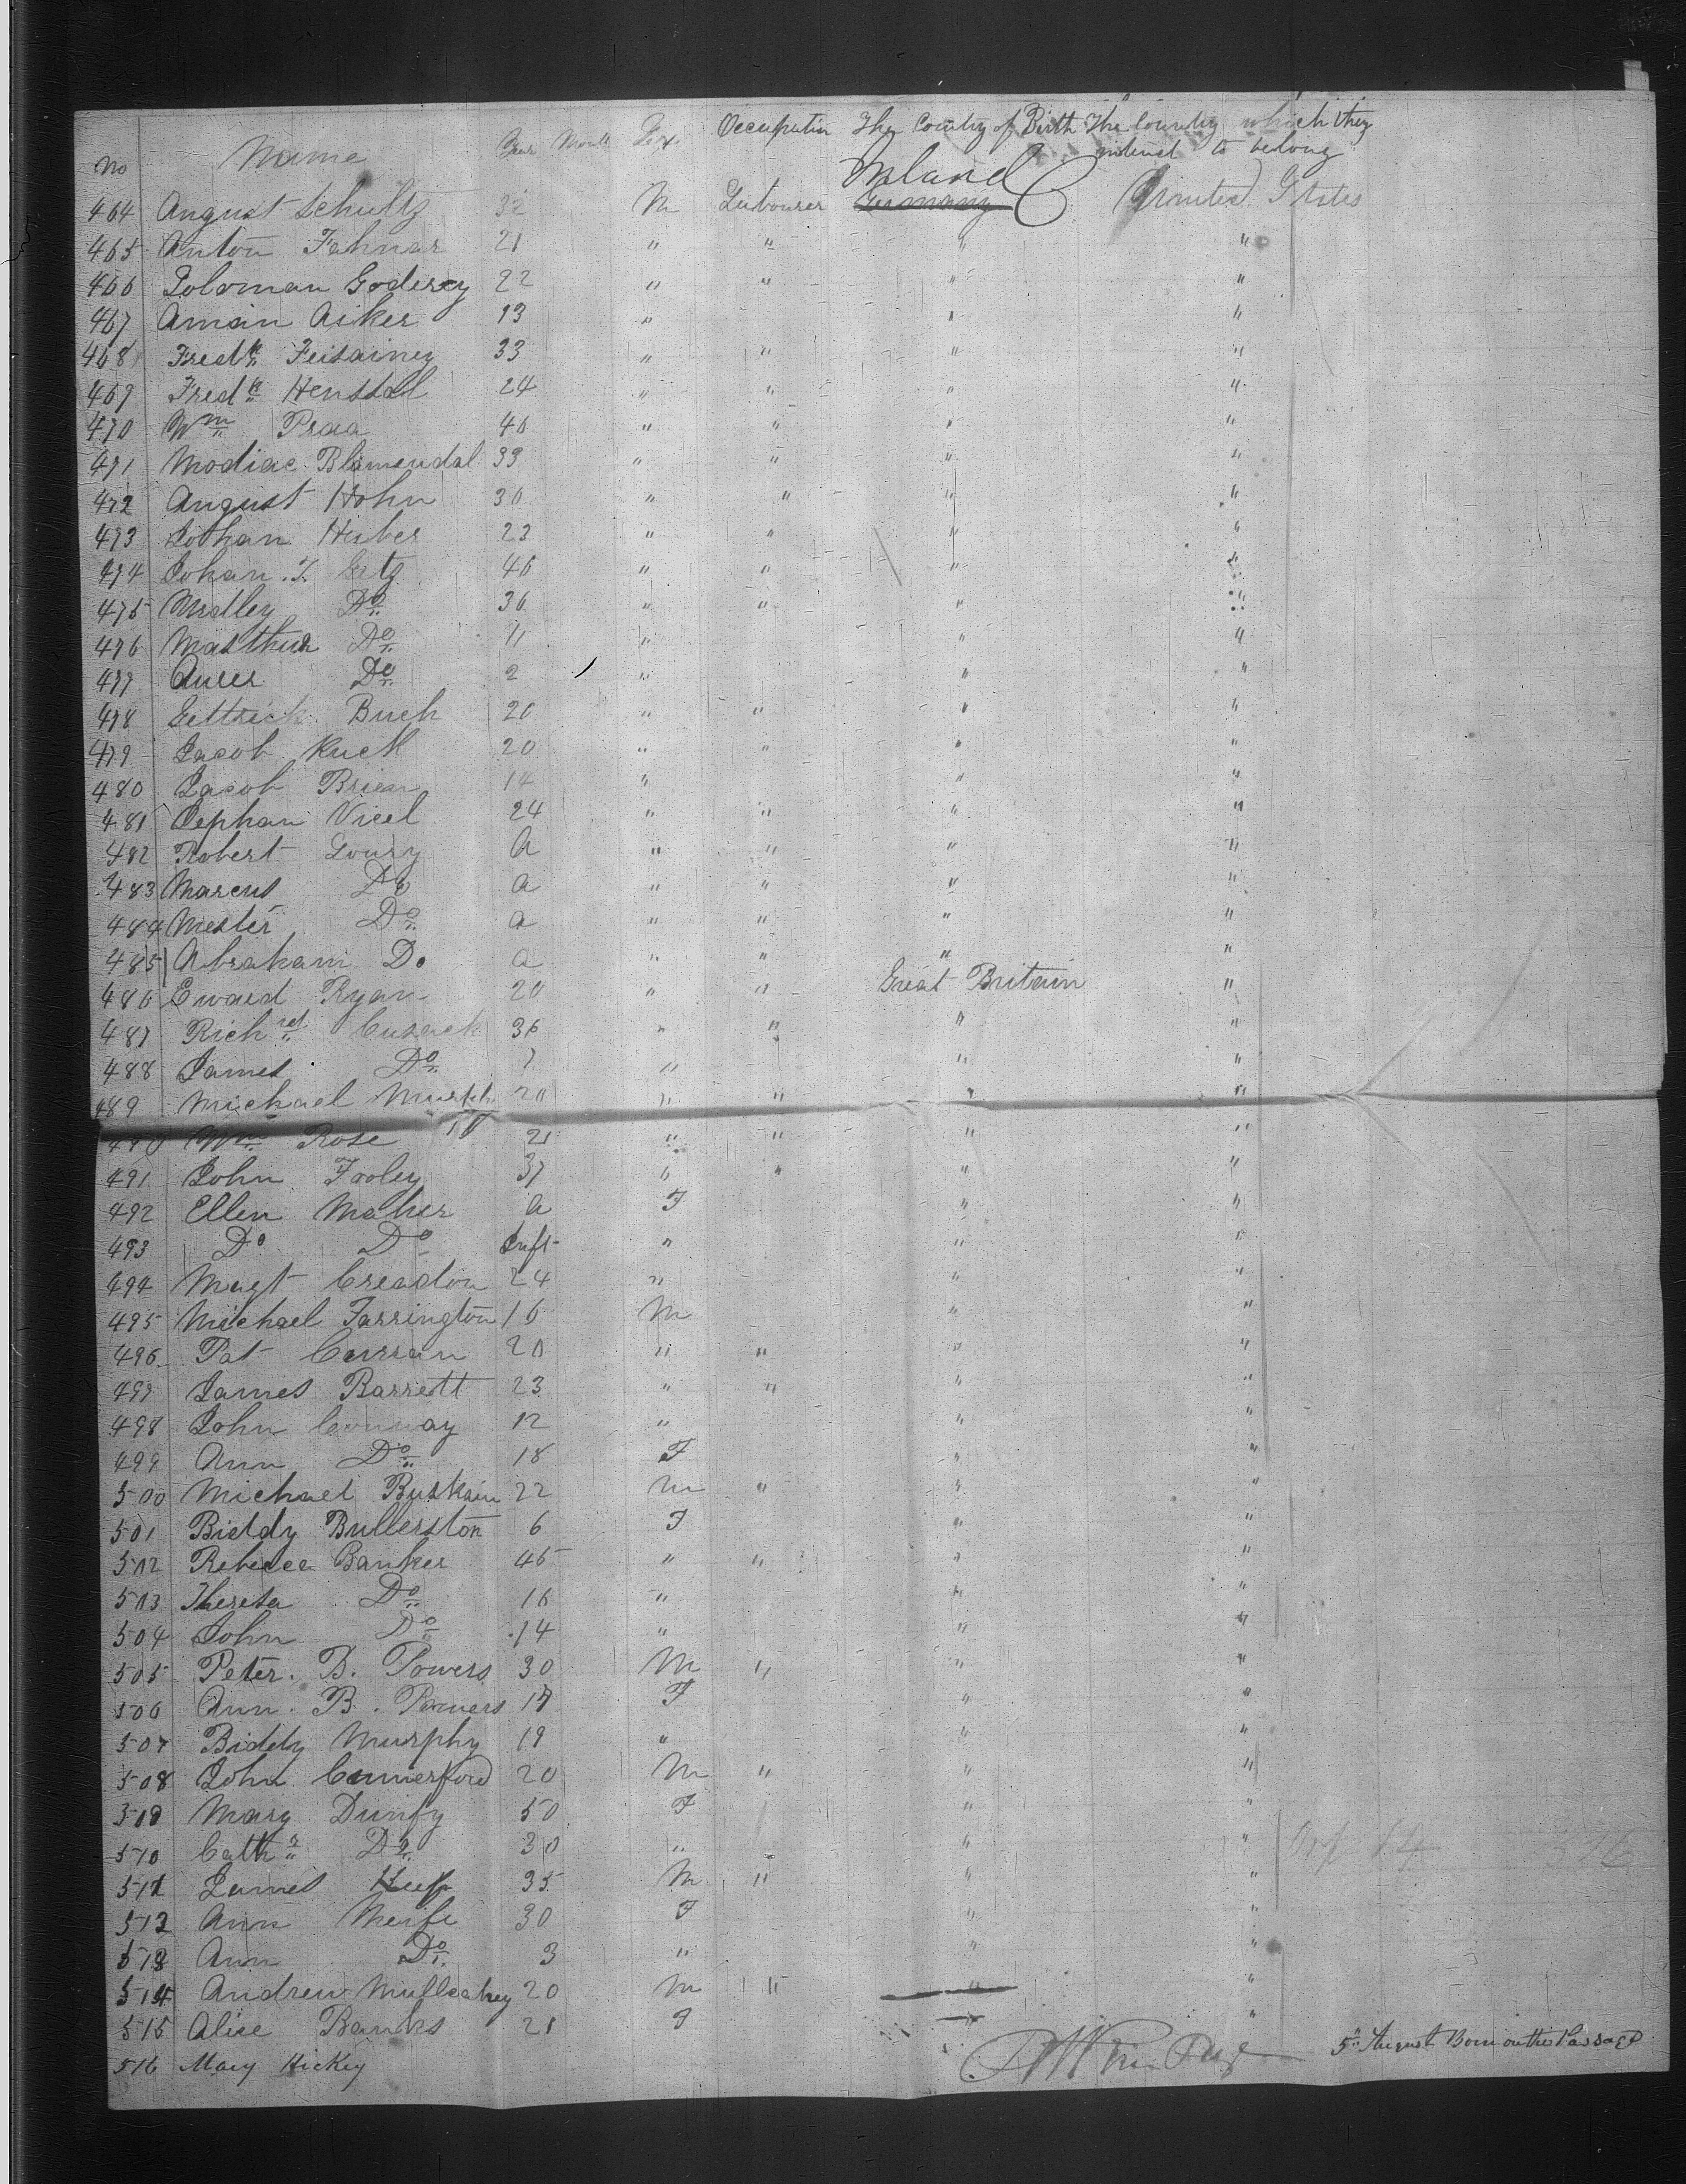 No Name Year Month Sex Occupation The Country of Birth The Country which they
intend to belong
Ireland
464 August Schultz 32 M Labourer Germany United States
465 Anton Fahnar 21 " " " "
466 Soloman Godirey 22 " " " "
467 Amain Aiker 13 " " "
468 Fredk Feisainey 33 " " " "
469 Fredk Henstal 24 " " " "
470 Wm Praa 46 " " " "
471 Modiac Blamendal 33 " " " "
472 August Hohn 30 " " " "
473 Lothan Huber 23 " " " "
474 Johan. T. 46 " " " "
475 Medley Do 36 " " " "
476 Masthur Do 11 " " "
477 Aures Do 2 " " "
478 Buch 20 " " " "
479 Jacob Ruck 20 " " " "
480 Jacob Briean 14 " " "
481 Cephan Vicel 24 " " " "
482 Robert Loury A " " " "
483 Marcus Do a " " " "
484 Mester Do a " " " "
485 Abraham Do a " " " "
486 Eward Ryan 20 " " Great Britain "
487 Richrd Cusack 36 " " " "
488 James Do 7 " " "
489 Michael Murphy 20 " " " "
490 Wm Rose 21 " " " "
491 John Fooley 37 " " " "
492 Ellen Maher A F " "
493 Do Do Inft " " "
494 Magt Creadon 24 " " "
495 Michael Farrington 16 M " "
496 Pat Curran 20 " " " "
497 James Barrett 23 " " " "
498 John Conway 12 " " "
499 Ann Do 18 F " "
500 Michael Buskain 22 M " " "
501 Biddy Bullerston 6 F " "
502 Rebecca Banker 45 " " " "
503 Theresa Do 16 " " "
504 John Do 14 " " "
505 Peter. B. Powers 30 M " " "
506 Ann. B. Powers 17 F " "
507 Biddy Murphy 19 " " "
508 John Cumerford 20 M " " "
509 Mary Dunfy 50 F " "
510 Cathe Do 30 " " "
511 James Keefe 35 M " " "
512 Ann Meife 30 F " "
513 Ann Do 3 " " "
514 Andrew Mullcahey 20 M " " "
515 Alice Banks 21 F " "
516 Mary Hickey 5th August Born on the Passage